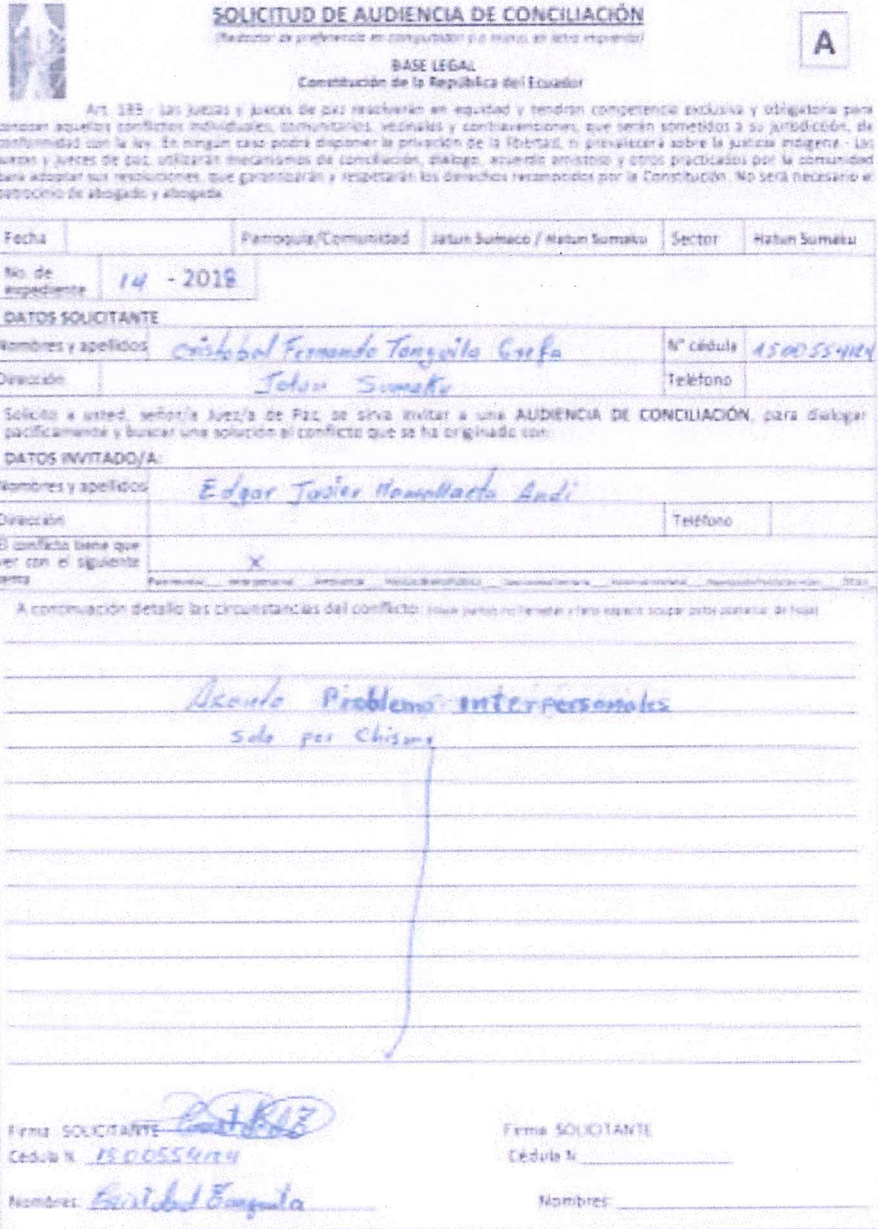 SOLICITUD DE AUDIENCIA DE CONCILIACIÓN
(Redactar de preferencia en computador o a mano, en letra imprenta)
A
BASE LEGAL
Constitución de la República del Ecuador
Art. 189.- Las juezas y jueces de paz resolverán en equidad y tendrán competencia exclusiva y obligatoria para
conocer aquellos conflictos individuales, comunitarios, vecinales y contravenciones, que serán sometidos a su jurisdicción, de
conformidad con la ley. En ningún caso podrá disponer la privación de la libertad, ni prevalecerá sobre la justicia indígena.- Las
juezas y jueces de paz, utilizarán mecanismos de conciliación, diálogo, acuerdo amistoso y otros practicados por la comunidad
para adoptar sus resoluciones, que garantizarán y respetarán los derechos reconocidos por la Constitución. No será necesario el
patrocinio de abogado y abogada.
Fecha Parroquia/Comunidad Jatun Sumaco / Hatun Sumaku Sector Hatun Sumaku
No. de
expediente 14 - 2018
DATOS SOLICITANTE
Nombres y apellidos Cristobal Fernando Tanguila Grefa N° cédula
Dirección Jatun Sumaku Teléfono
Solicito a usted, señor/a Juez/a de Paz, se sirva invitar a una AUDIENCIA DE CONCILIACIÓN, para dialogar
pacíficamente y buscar una solución al conflicto que se ha originado con:
DATOS INVITADO/A:
Nombres y apellidos Edgar Javier Mamallacta Andi
Dirección Teléfono
El conflicto tiene que
ver con el siguiente
tema X
Patrimonial Interpersonal Ambiental
A continuación detallo las circunstancias del conflicto:
Asunto Problema interpersonales
solo por Chisme
Firma SOLICITANTE Firma SOLICITANTE
Cédula N. Cédula N.
Nombres: Cristobal Tanguila Nombres: